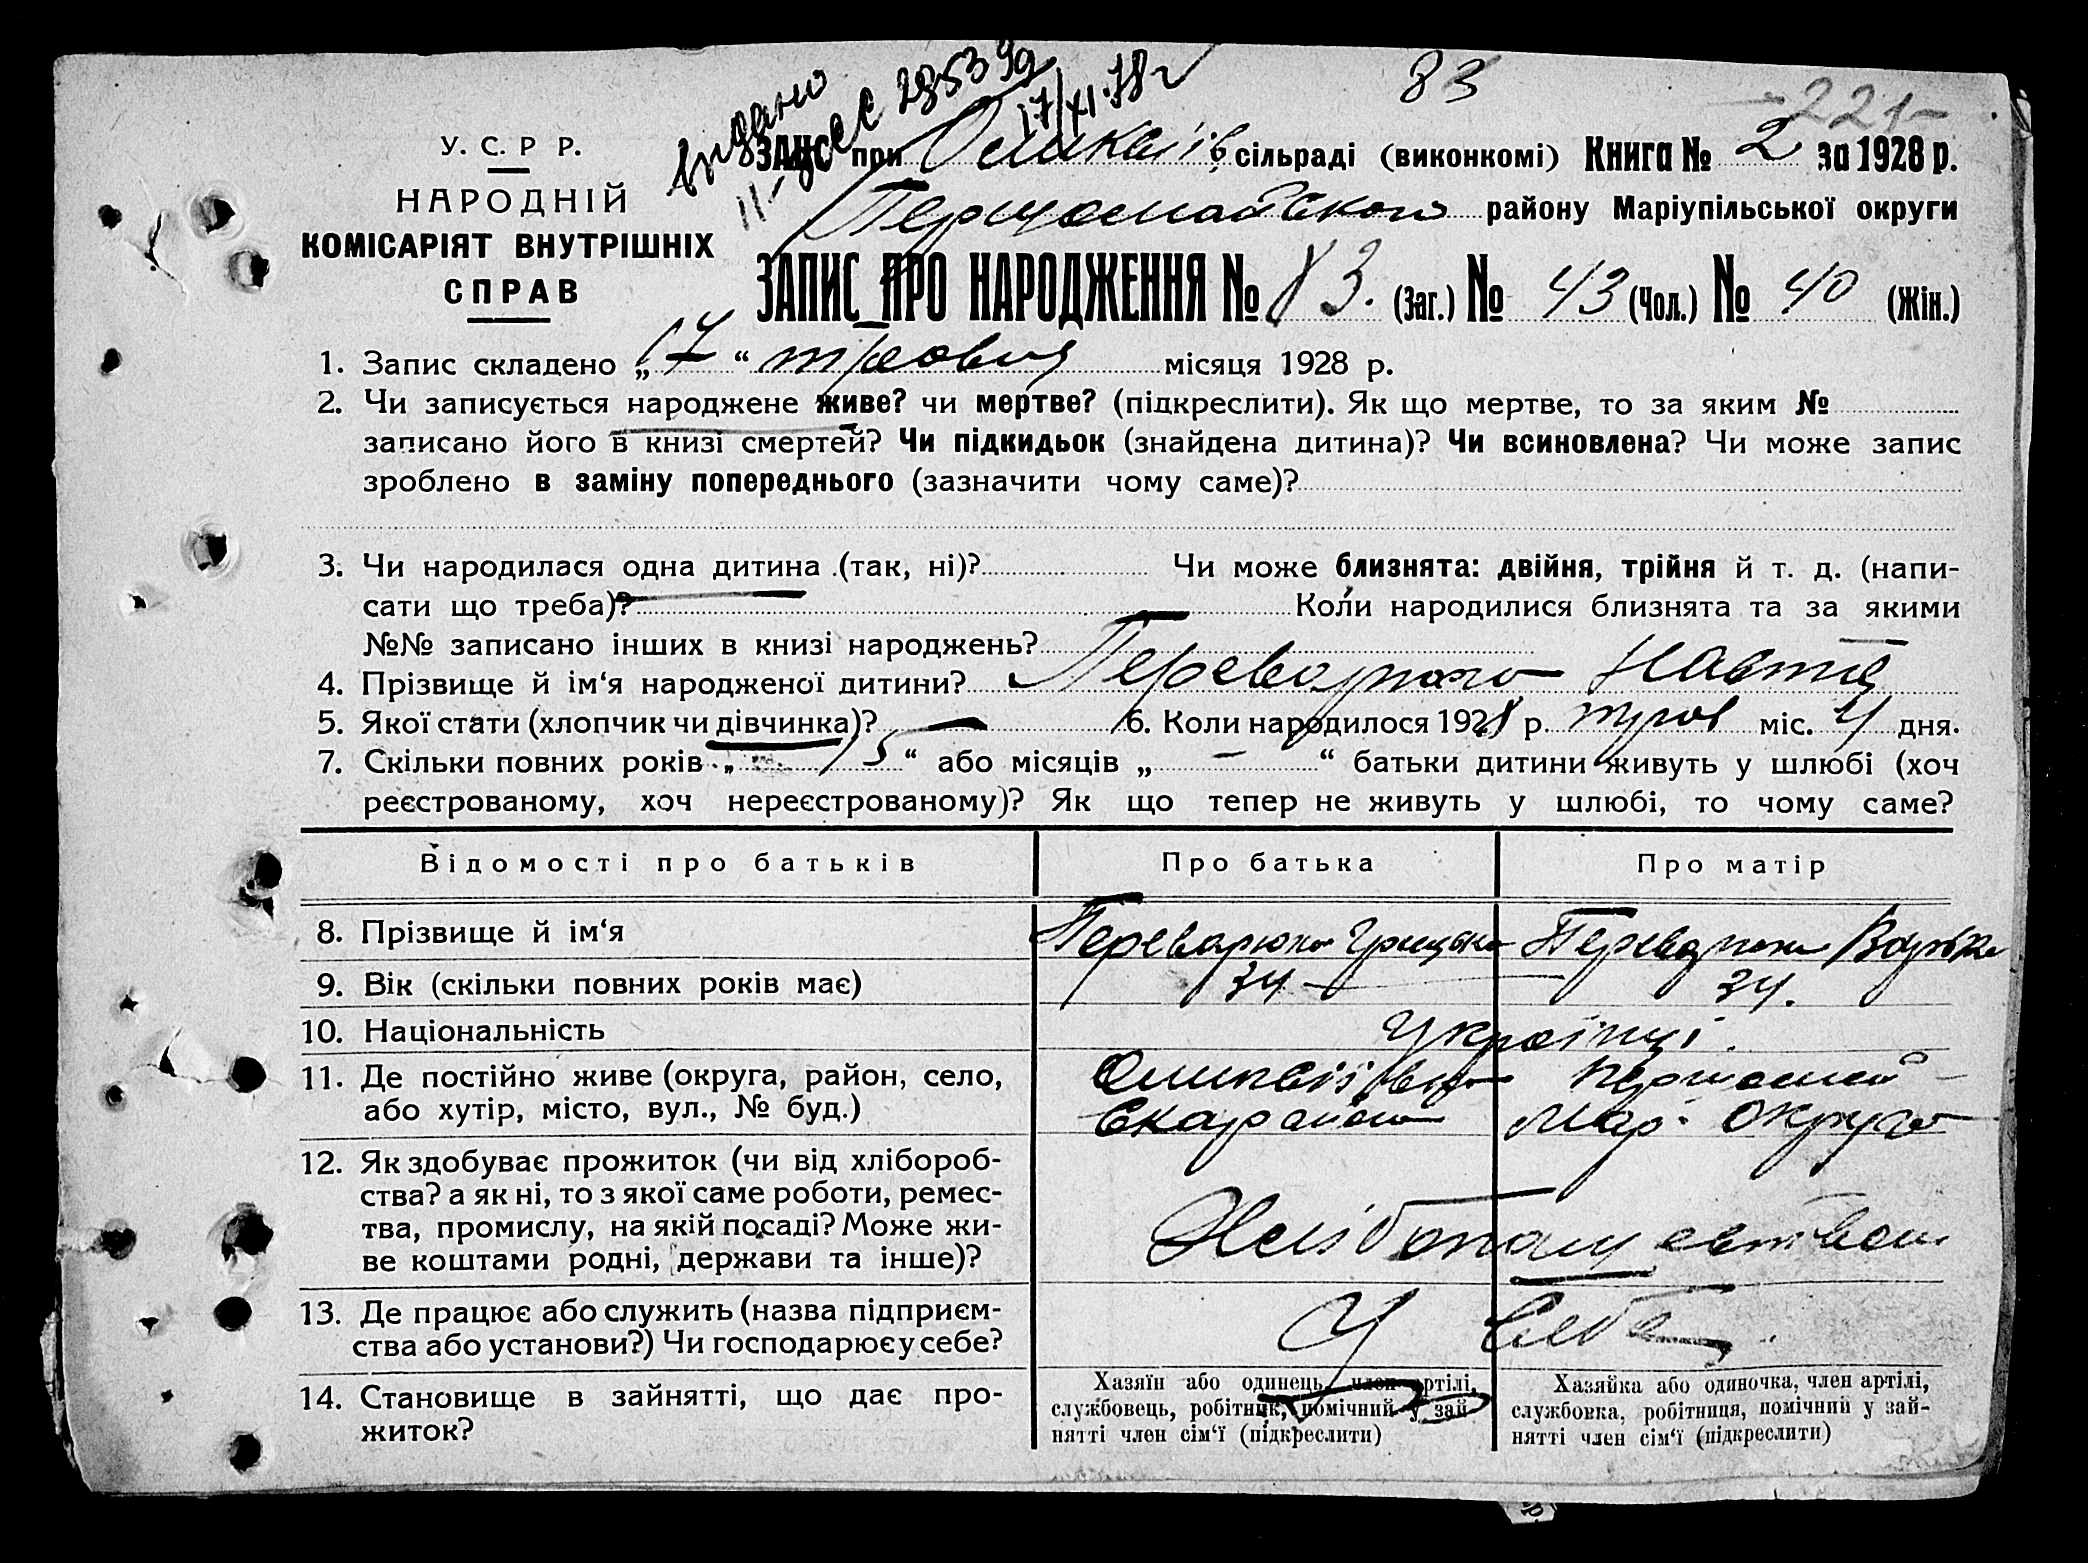 видано
83
221
У. С. Р Р.
ЗАЦС при сільраді (виконкомі) Книга № 2 за 1928 р.
НАРОДНІЙ
Першомайського району Маріупільської округи
КОМІСАРІЯТ ВНУТРІШНІХ
СПРАВ
ЗАПИС ПРО НАРОДЖЕННЯ № 83. (Заг.) № 43 (Чол.) № 40 (Жін.)
1. Запис складено „17“ травня місяця 1928 р.
2. Чи записується народжене живе? чи мертве? (підкреслити). Як що мертве, то за яким №
записано його в книзі смертей? Чи підкидьок (знайдена дитина)? Чи всиновлена? Чи може запис
зроблено в заміну попереднього (зазначити чому саме)?
3. Чи народилася одна дитина (так, ні)? Чи може близнята: двійня, трійня й т. д. (напи-
сати що треба)? Коли народилися близнята та за якими
№№ записано інших в книзі народжень?
4. Прізвище й ім‘я народженої дитини?
5. Якої стати (хлопчик чи дівчинка)? — 6. Коли народилося 1928 р. трав міс. 4 дня.
7. Скільки повних років „ 15 “ або місяців „ — “ батьки дитини живуть у шлюбі (хоч
реєстрованому, хоч нереєстрованому)? Як що тепер не живуть у шлюбі, то чому саме?
Відомості про батьків Про батька Про матір
8. Прізвище й ім‘я Грицько
9. Вік (скільки повних років має) 34 — 34.
10. Національність Українці
11. Де постійно живе (округа, район, село, Першомай-
або хутір, місто, вул., № буд.) ська району Мар. округа
12. Як здобуває прожиток (чи від хлібороб-
ства? а як ні, то з якої саме роботи, ремес-
тва, промислу, на якій посаді? Може жи-
ве коштами родні, держави та інше)?
13. Де працює або служить (назва підприєм- У себе.
ства або установи?) Чи господарює у себе?
14. Становище в зайнятті, що дає про-
житок?
Хазяїн або одинець, член артілі,
службовець, робітник, помічний у зай-
нятті член сім‘ї (підкреслити)
Хазяйка або одиночка, член артілі,
службовка, робітниця, помічний у зай-
нятті член сім‘ї (підкреслити)